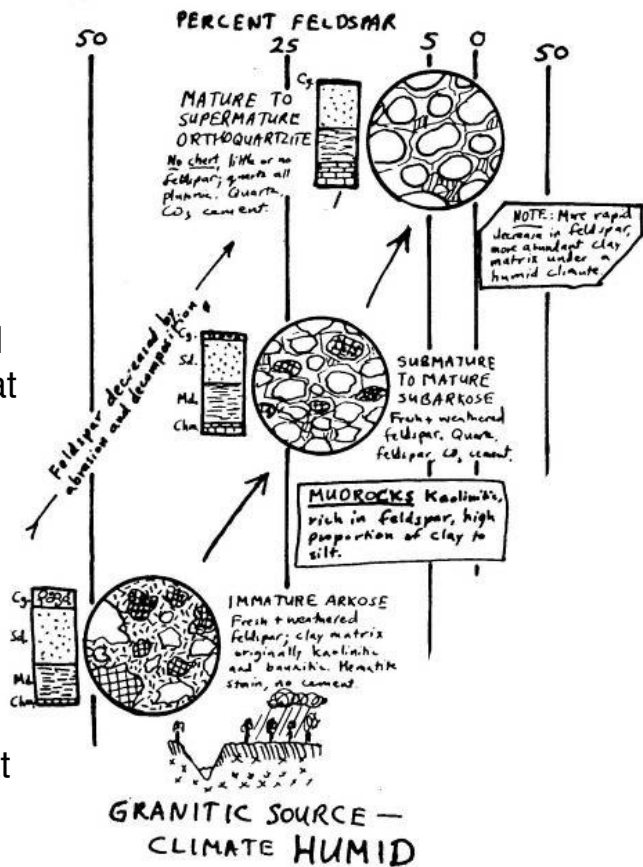 PERCENT FELDSPAR
50
25
5
0
50
MATURE TO
SUPERMATURE
ORTHOQUARTZITE
No chert, little or no
feldspar; quartz all
plutonic. Quartz,
CO3 cement.
Cg.
NOTE: More rapid
decrease in feldspar,
more abundant clay
matrix under a
humid climate.
Feldspar decreased by
abrasion and decomposition
at
Cg.
Sd.
Md.
Chm.
SUBMATURE
TO MATURE
SUBARKOSE
Fresh + weathered
feldspar. Quartz,
feldspar, CO3 cement.
MUDROCKS Kaolinitic,
rich in feldspar, high
proportion of clay to
silt.
Cg.
Sd.
Md.
Chm.
IMMATURE ARKOSE
Fresh + weathered
feldspar; clay matrix
originally kaolinitic
and bauxitic. Hematite
stain, no cement.
t
GRANITIC SOURCE —
CLIMATE HUMID